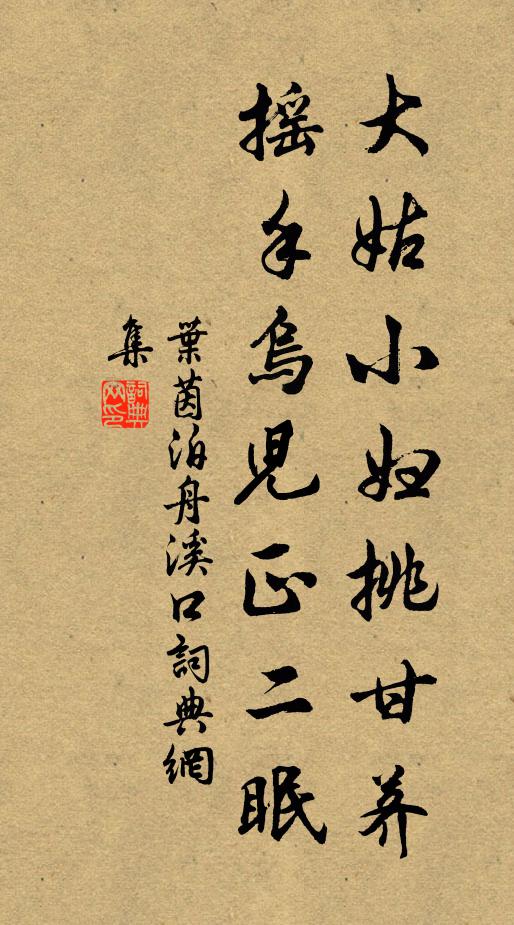 大姑小妇挑甘荠
摇手乌儿正二眠
葉茵泊舟溪口詞典網
集
詞典网印